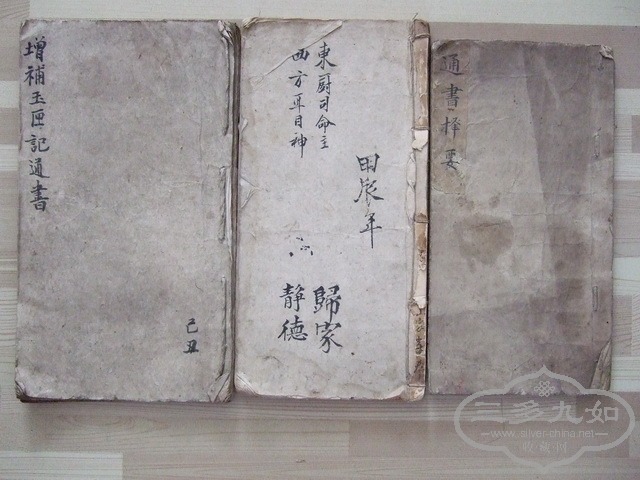 增補玉匣記通書
己丑
東厨司命主
西方耳目神
田辰年
歸家
靜德
通書择要
三多九如
www.silver-china.net
收藏网